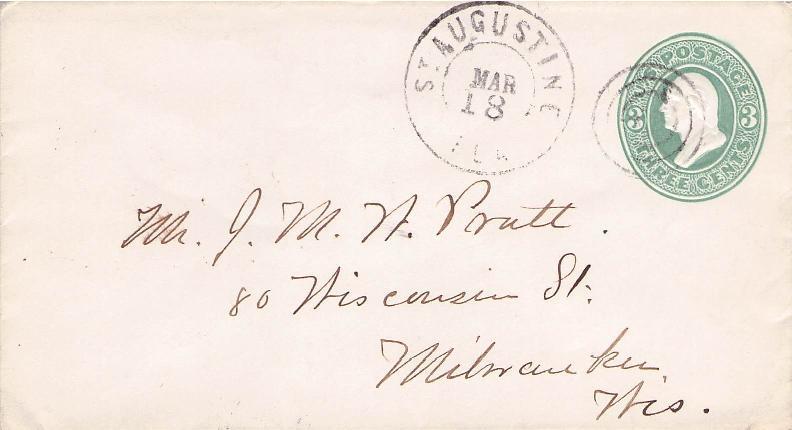 ST. AUGUSTINE
MAR
18
FLA
POSTAGE
3 3
THREE CENTS
Mr. J. M. W. Pratt.
80 Wisconsin St.
Milwaukee
Wis.